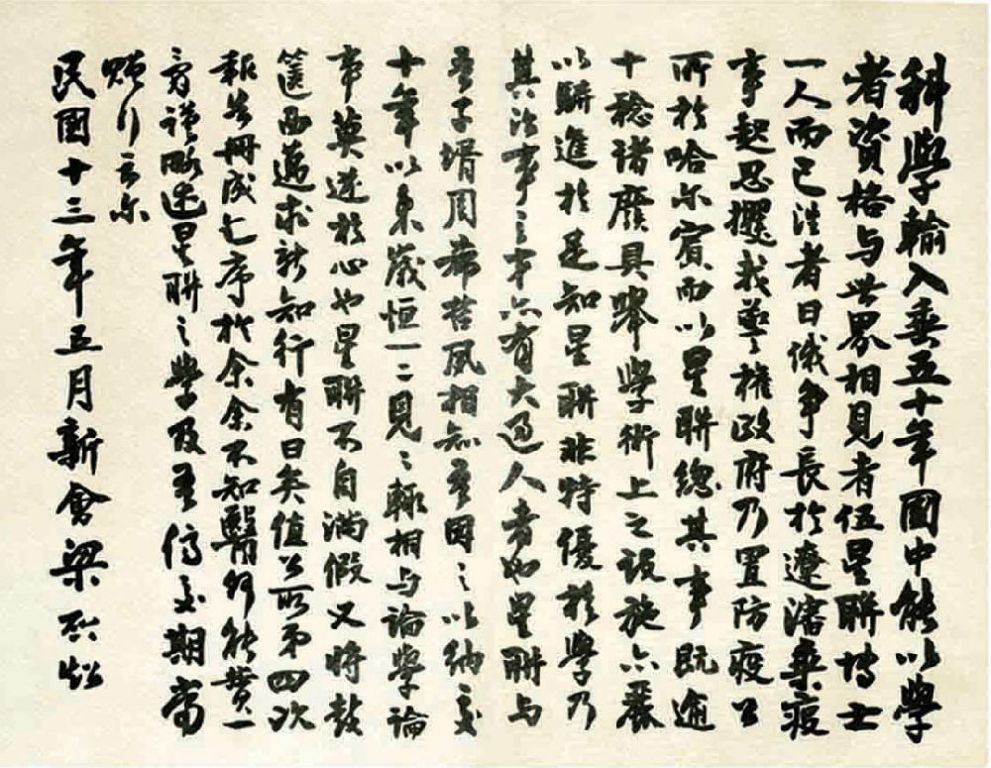 科學輸入垂五十年國中能以學
者資格与世界相見者伍星聯博士
一人而已往者日俄爭長於遼瀋乘疫
事起思攫我權政府乃置防疫公
所於哈尔賓而以星聯總其事既逾
十稔諸廢具舉學術上之設施亦
以駢進於是知星聯非特優於學乃
其治事之才亦有大過人者也星聯与
吾子壻周希哲夙相知吾因之以納交
十年以來歲恒一二見〻輒相与論學論
事莫逆於心也星聯不自滿假又將鼓
篋西邁求新知行有日矣值公所第四次
報告冊成乞序於余余不知醫何能贊一
言謹略述星聯之學及吾交期當
贐行云尔
民國十三年五月新會梁啓超